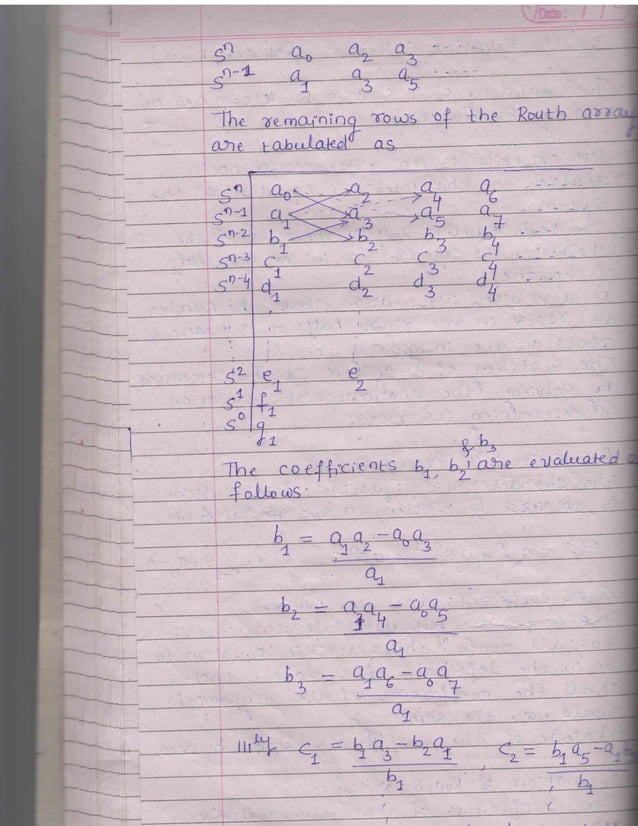 Date:
Sⁿ a₀ a₂ a₃ ------
Sⁿ⁻¹ a₁ a₃ a₅ -----
The remaining rows of the Routh array
are tabulated as
Sⁿ a₀ a₂ a₄ a₆ ----
Sⁿ⁻¹ a₁ a₃ a₅ a₇ ----
Sⁿ⁻² b₁ b₂ b₃ b₄ ----
Sⁿ⁻³ c₁ c₂ c₃ c₄
Sⁿ⁻⁴ d₁ d₂ d₃ d₄
S² e₁ e₂
S¹ f₁
S⁰ g₁
& b₃
The coefficients b₁, b₂, are evaluated
follows.
b₁ = (a₁a₂ - a₀a₃) / a₁
b₂ = (a₁a₄ - a₀a₅) / a₁
b₃ = (a₁a₆ - a₀a₇) / a₁
IIIly c₁ = (b₁a₃ - b₂a₁) / b₁ , c₂ = (b₁a₅ - a₁ / b₁